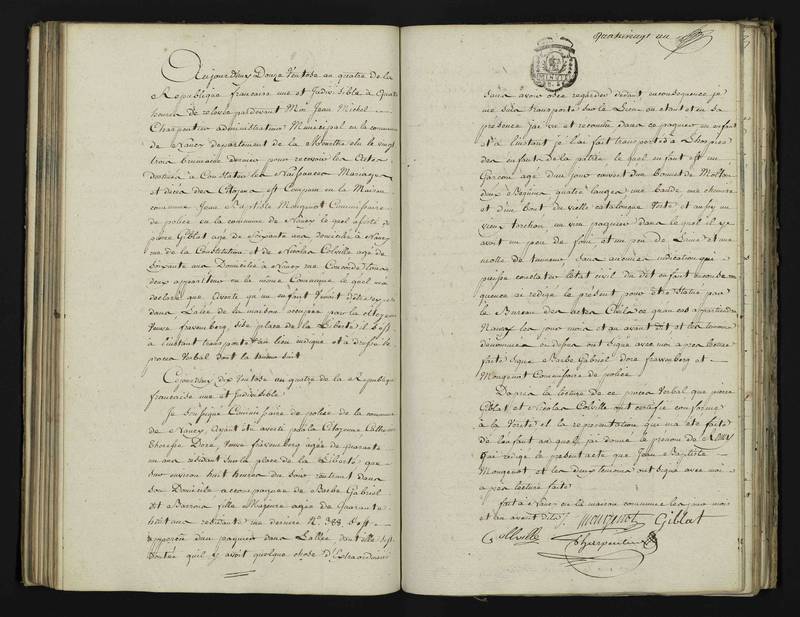 Aujourdhuy Douze Ventose an quatre de la
Republique francaise une et Indivisible a quatre
heures de relevée pardevant Moi Jean Michel
Charpentier administrateur Municipal en la commune
de Nancy departement de la Meurthe elu le vingt
trois brumaire dernier pour recevoir les Actes
destinés a Constater les Naissances Mariages
et déces des Citoyens est Comparu en la Maison
commune Jean Baptiste Mougenot Commissaire
de police en la commune de Nancy le quel assisté de
pierre Giblat agé de Soixante ans domicilié a Nancy
rue de la Constitution et de Nicolas Colville agé de
Soixante ans Domicilié a Nancy rue
deux appariteurs en la même Commune le quel m'a
declaré que averti qu'un enfant Venoit d'être exposé
dans Lalée de la maison occupée par la citoyenne
Veuve fravemberg sise place de la Liberté il s'est
a l'instant transporté au lieu indiqué et a dressé le
proces Verbal dont la teneur suit
Cejourdhuy dix Ventose an quatre de la Republique
francaise une et Indivisible
Je Soussigné Commissaire de police de la commune
de Nancy, ayant été averti par la Citoyenne Catherine
Therese Doré, Veuve fravemberg agée de quarante
un ans residant sur la place de la Liberté que
sur environ huit heures du soir rentrant dans
son Domicile accompagnée de Barbe Gabriel
dit Barrois fille Majeure agée de quarante
huit ans residante rue derniere N.º 388 s'est
apperçu d'un paquier dans Lallée dont elle s'est
doutée qu'il y avoit quelque chose d'Extraordinaire
quatrevingt un
sans avoir osée regarder dedant inconsequence je
me suis transporté sur le Lieu ou etant et en sa
presence j'ai vu et reconnu dans ce paquier un enfant
et a l'instant je l'ai fait transporté a L'hospice
des enfants de la patrie le quel enfant est un
Garçon agé d'un jour couvert d'un bonnet de Molton
deux Beguins quatre langes une bande une chemise
et d'un bout de vielle catalongue Verte et aussy un
vieux torchon, un vieu paquier dans le quel il y
avoit un peu de foin, et un peu de et une
motte de tanneur, sans aucune indication qui
puisse constater letat civil du dit enfant en conse
quence ai redigé le présent pour être statué par
le Bureau des actes Civils ce quau cas appartiendra
Nancy les jour mois et an avant dit et les temoins
denommés cidessus ont signé avec moi apres lecture
faite signé Barbe Gabriel doré fravemberg et
Mougenot Commissaire de police
Dapres la lecture de ce proces Verbal que pierre
Giblat et Nicolas Colville ont certifié conforme
a la Verité et la representation qui m'a été faite
de l'enfant au quel j'ai donné le prenom de
J'ai redigé le present acte que Jean Baptiste
Mougenot et les deux temoins ont signé avec moi
apres lecture faite
fait a Nancy en la maison commune les jour mois
et an avant dits. Mougenot Giblat
Collville Charpentier